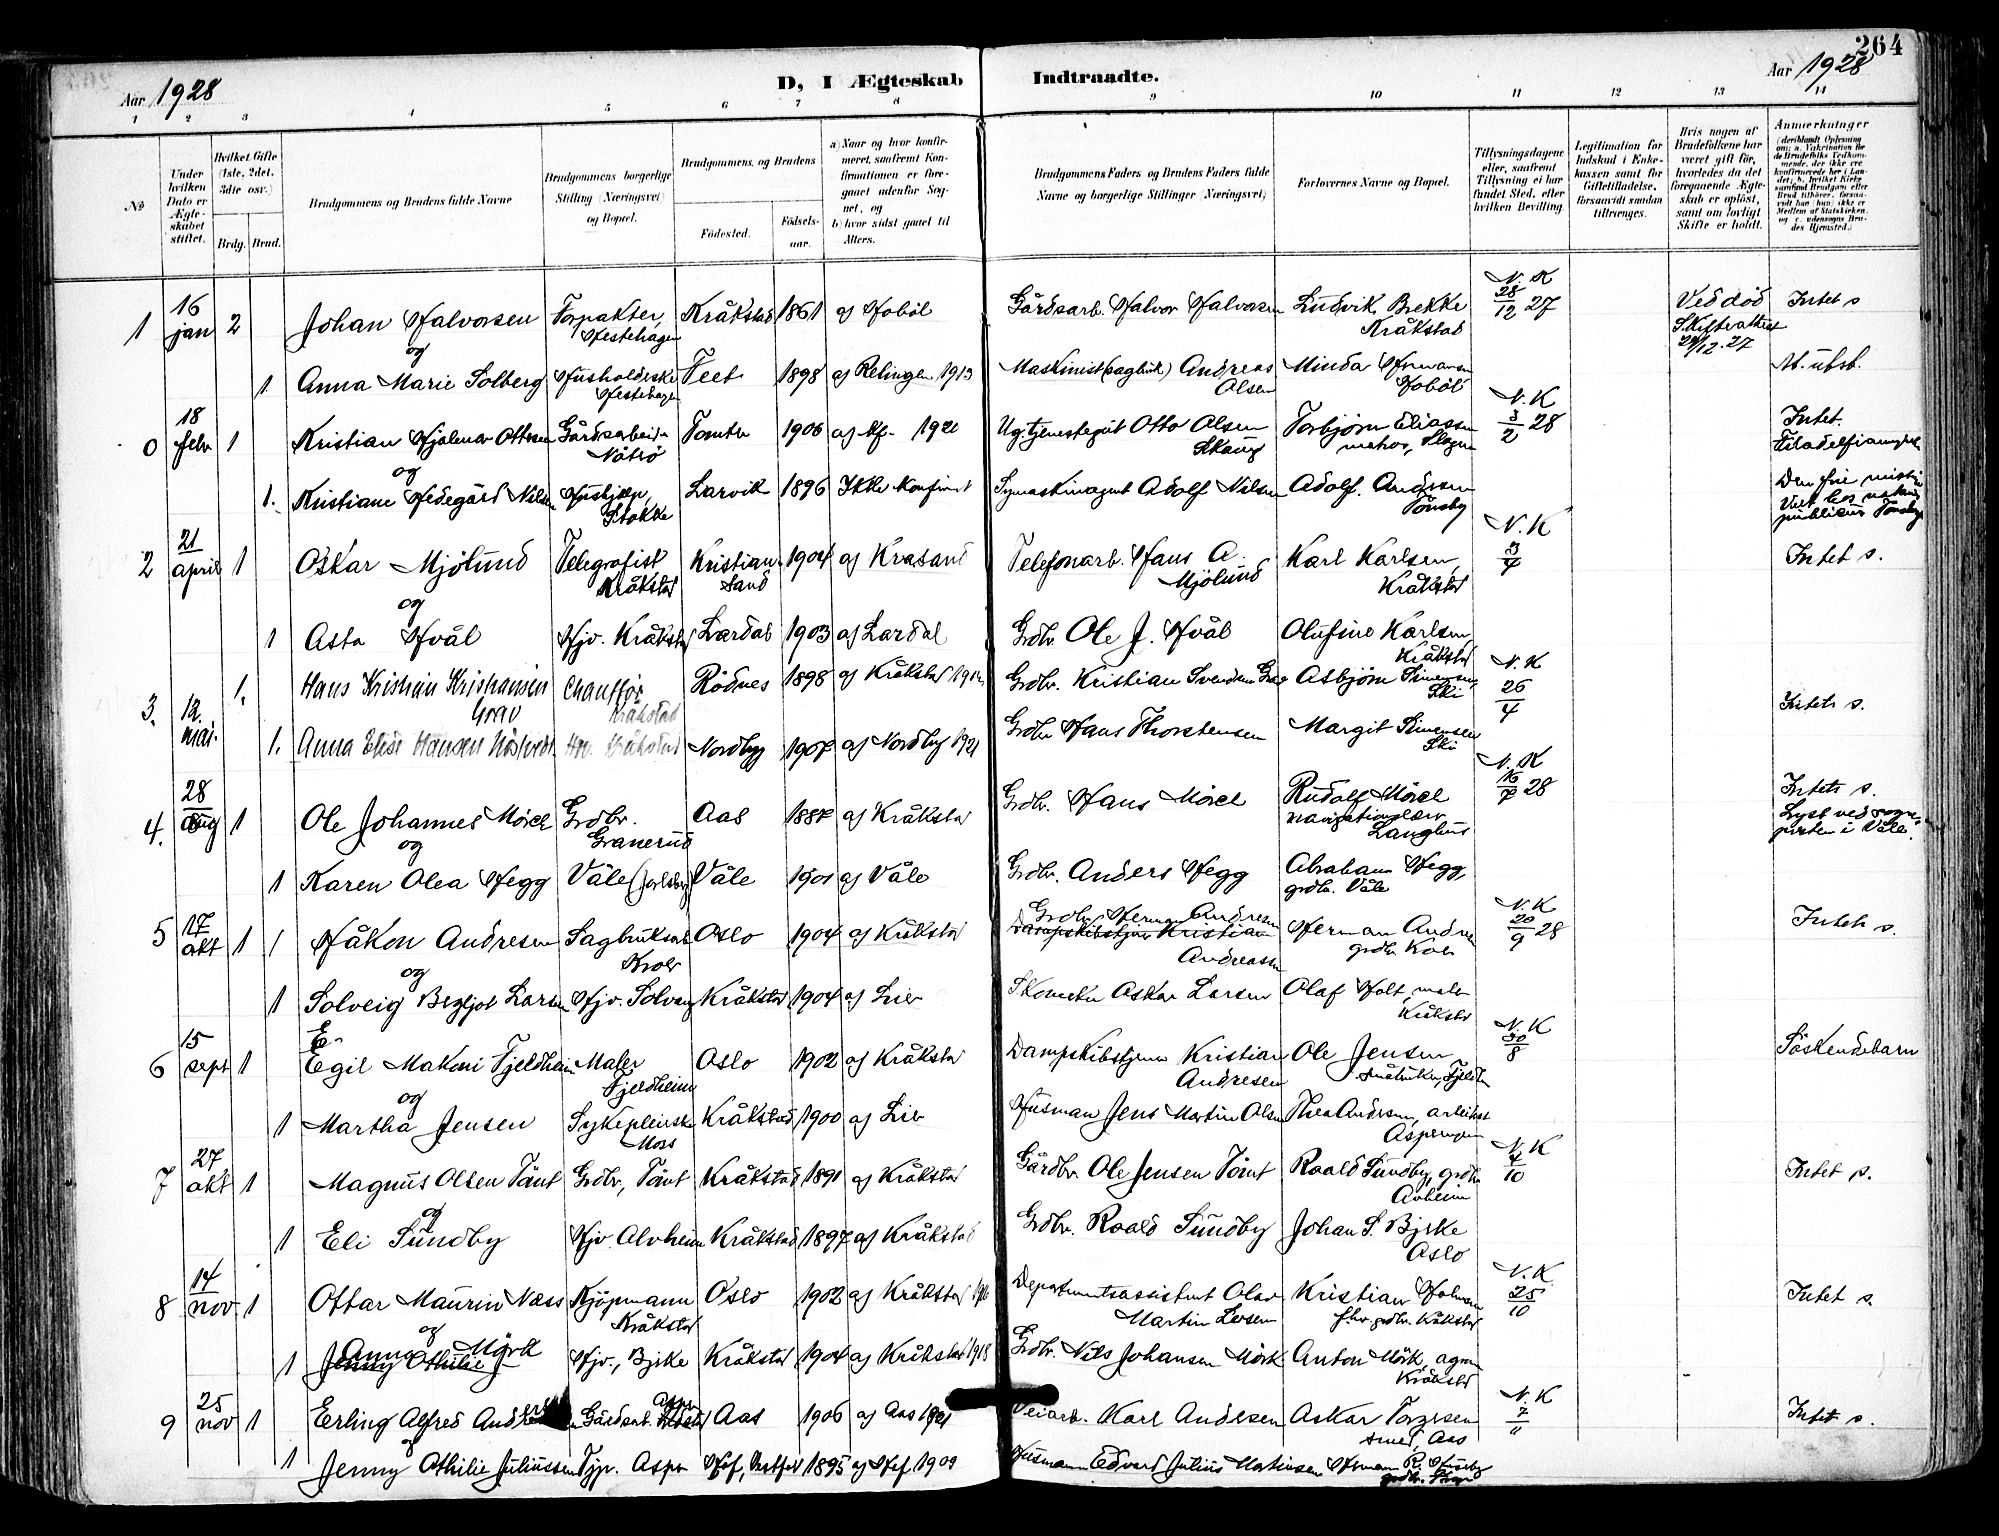 264
Aar 1928
D, I Ægteskab Indtraadte.
Aar 1928
1 2 3 4 5 6 7 8 9 10 11 12 13 14
No
Under hvilken Dato er Ægteskabet stiftet.
Hvilket Gifte (1ste, 2det, 3die osv.)
Brdg. Brud.
Brudgommens og Brudens fulde Navne
Brudgommens borgerlige Stilling (Næringsvei) og Bopæl.
Brudgommens og Brudens
Fødested. Fødselsaar.
a) Naar og hvor konfirmeret, saafremt Konfirmationen er foregaaet udenfor Sognet, og
b) hvor sidst gaaet til Alters.
Brudgommens Faders og Brudens Faders fulde Navne og borgerlige Stillinger (Næringsvei)
Forlovernes Navne og Bopæl.
Tillysningsdagene eller, saafremt Tillysning ei har fundet Sted, efter hvilken Bevilling.
Legitimation for Indskud i Enkekassen samt for Giftetilladelse, forsaavidt saadan tiltrænges.
Hvis nogen af Brudefolkene har været gift før, hvorledes da det foregaaende Ægteskab er opløst, samt om lovligt Skifte er holdt.
Anmerkninger
1 16 jan 2 Johan Halvorsen Forpakter, Hestehagen Kråkstad 1861 af Hobøl Gårdsarb. Halvor Halvorsen Ludvik Brekke Kråkstad N. K 28/12 27 Ved død Skifteattest /12.27 Intet s
og
1 Anna Marie Solberg Husholderske Hestehagen Feet 1898 af Relingen 1913 Maskinist (sagbruk) Andreas Olsen Minda Hermansen Hobøl
0 18 febr 1 Kristian Hjalmar Ottesen Gårdsarbeid. Nøtrø Tomter 1906 af 1921 Otto Olsen Skaug Torbjørn Eliassen N. K 3/2 28 Intet.
og
1. Kristiane Hedegård Nilsen Hushjelp, Stokke Larvik 1896 Ikke konfirmert Symaskinagent Adolf Nilsen Adolf Andersen Tønsby
2 21 april 1 Oskar Mjølund Telegrafist Kråkstad Kristiansand 1904 af Krasand Telefonarb. Hans A. Mjølund Karl Karlsen, Kråkstad N. K 3/4 Intet s.
og
1 Asta Hvål Hjv. Kråkstad Lardal 1903 af Lardal Grdbr. Ole J. Hvål Olufine Karlsen, Kråkstad
3. 12. mai. 1. Hans Kristian Kristiansen Grav Chauffør Kråkstad Rødnes 1898 af Kråkstad Grdbr. Kristian Svendsen Grav Asbjørn Simensen, Ski N. K 26/4 Intet s.
1. Anna Elise Hansen Hv. Kråkstad Nordby 1907 af Nordby 1921 Grdbr Hans Thorstensen Margit Simensen Ski
4. 28 aug 1 Ole Johannes Mörch Grdbr. Granerud Aas 1887 af Kråkstad Grdbr. Hans Mörch Rudolf Mörch navigationslær Langhus N. K 16/7 28 Intet s. Lyst ved sogneprsten i Våle.
og
1 Karen Olea Hegg Våle (Jarlsberg) Våle 1901 af Våle Grdbr. Anders Hegg Abraham Hegg, grdbr. Våle
5 17 okt 1 1 Håkon Andresen Sagbruksarb Kroer Oslo 1904 af Kråkstad Grdbr Herman Andresen Dampskibstjener Kristian Andreassen Herman Andre grdbr Kroer N. K 20/9 28 Intet s.
og
1 Solveig Bergljot Larsen Hjv. Solvang Kråkstad 1904 af Lier Skomaker Oskar Larsen Olaf Holt, maler Kråkstad
6 15 sept 1 E- Egil Makoni Fjeldheim Maler Fjeldheim Oslo 1902 af Kråkstad Dampskibstjener Kristian Andresen Ole Jensen småbruker, Fjeldh N. K 30/8 Søskendebarn
og
1 Martha Jensen Sykepleierske Moss Kråkstad 1900 af Lier Husman Jens Martin Olsen Thea Andersen, arbeider Aspengen
7 27 okt 1 Magnus Olsen Tömt Grdbr, Tömt Kråkstad 1891 af Kråkstad Gårdbr. Ole Jensen Tömt Roald Sundby, grdbr Avheim N. K 4/10 Intet s.
og
1 Eli Sundby Hjv. Alvheim Kråkstad 1897 af Kråkstad Grdbr. Roald Sundby Johan S. Bjrke Oslo
8 14 nov 1 Ottar Maurin Næss Kjöpmann Kråkstad Oslo 1902 af Kråkstad Departementsassistent Olav Martin Kristian Holmsen grdbr. Kråkstad N. K. 25/10 Intet s.
og
1 Jenny Othilie Anna Mörk Hjv., Bjrke Kråkstad 1904 af Kråkstad 1918 Grdbr. Nils Johansen Mörk Anton Mörk, agron Kråkstad
9 25 nov 1 Erling Alfred Andersen Gårdsarb. Asper Aas 1906 af Aas 1921 Veiarb. Karl Andersen Askar Torgersen smed, Aas N. K 7/11 Intet s.
og
1 Jenny Othilie Juliussen Tjp. Asper 1895 af 1909 Husmann Edvard Julius Martinsen Herman R. Huseby grdbr.